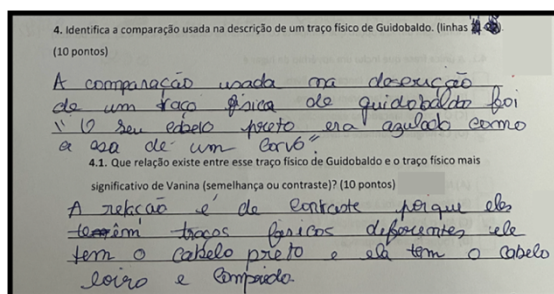 4. Identifica a comparação usada na descrição de um traço físico de Guidobaldo. (linhas
(10 pontos)
A comparação usada na descrição
de um traço física de guidobaldo foi
"O seu cabelo preto era azulado como
a asa de um corvo".
4.1. Que relação existe entre esse traço físico de Guidobaldo e o traço físico mais
significativo de Vanina (semelhança ou contraste)? (10 pontos)
A relação é de contraste porque eles
têm traços físicos diferentes ele
tem o cabelo preto e ela tem o cabelo
loiro e comprido.